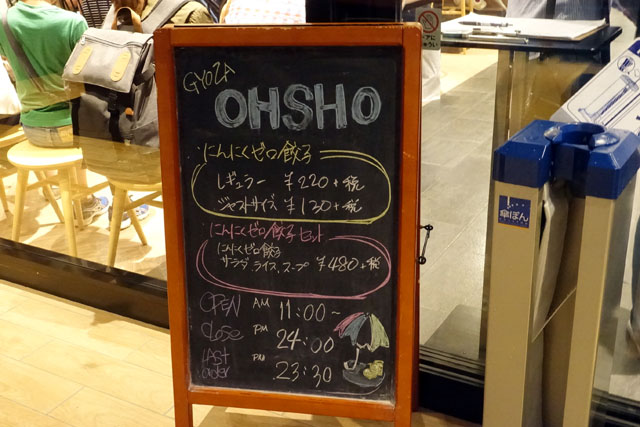 GYOZA
OHSHO
にんにくゼロ餃子
レギュラー ¥220+税
ジャストサイズ ¥130+税
にんにくゼロ餃子セット
にんにくゼロ餃子
サラダ、ライス、スープ ¥480+税
OPEN AM 11:00~
CLOSE PM 24:00
LAST order PM 23:30
傘ぽん